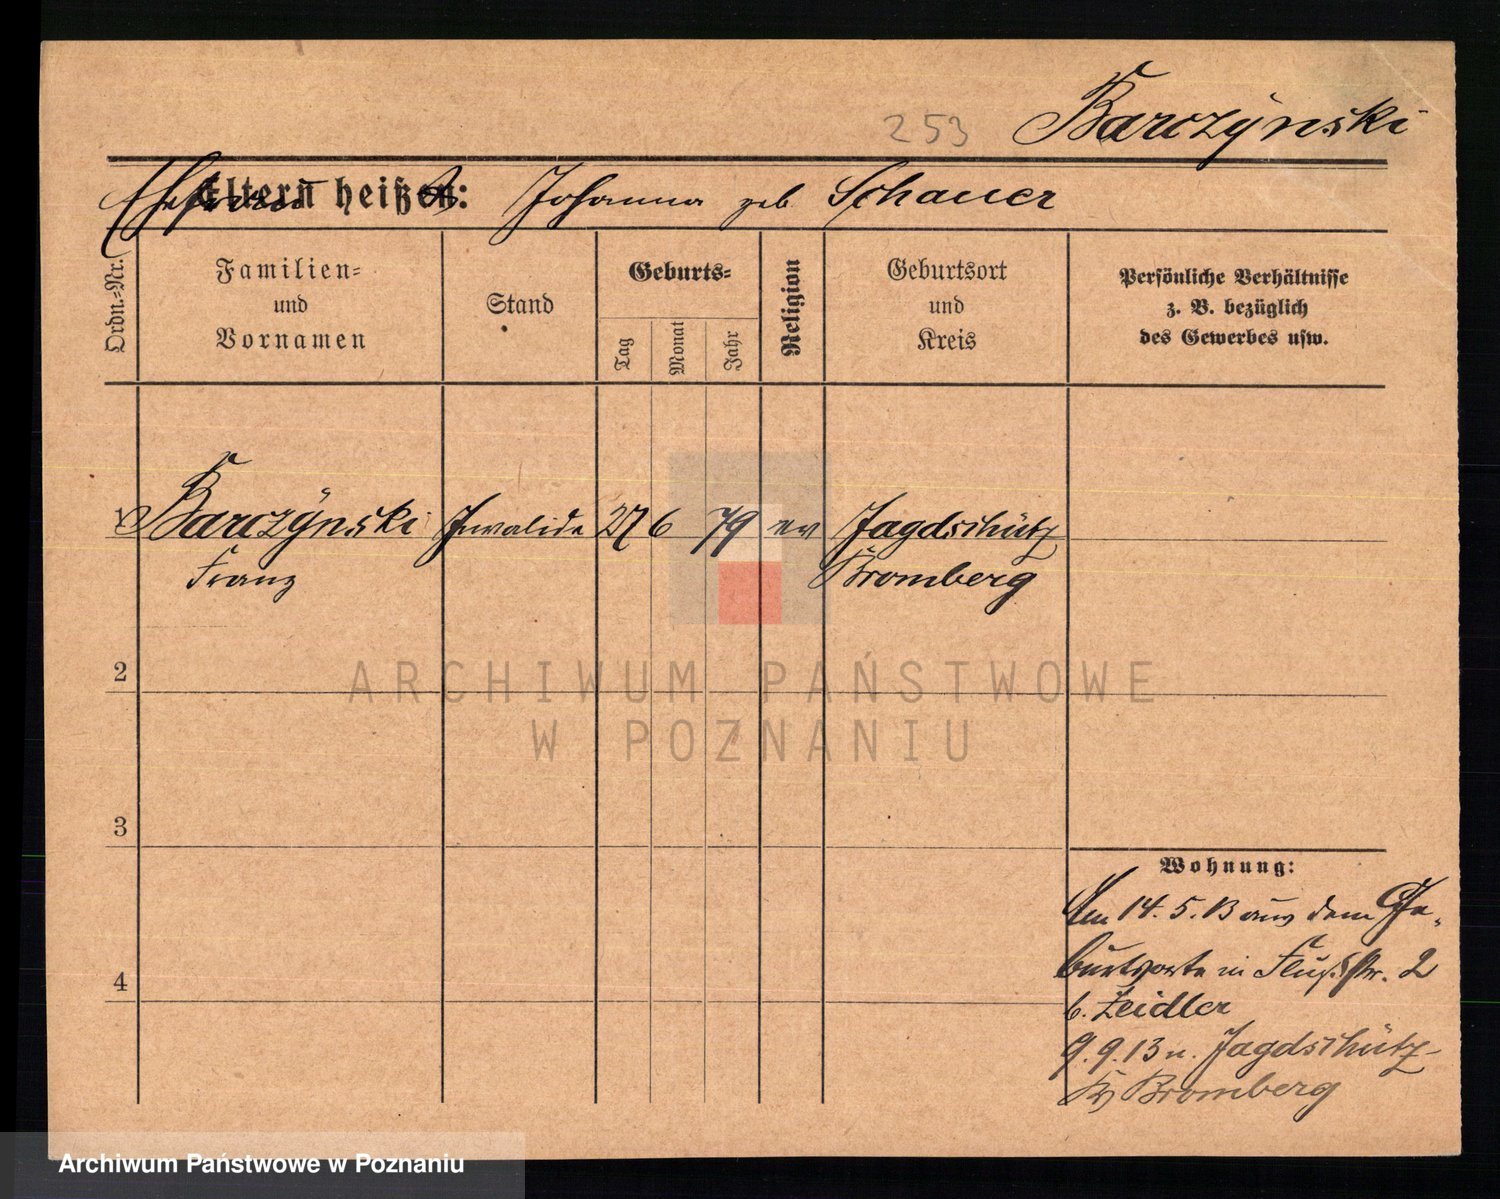 253 Barczynski
Eltern heißen: Johanna geb. Schauer
Ordn.-Nr.
Familien-
und
Vornamen
Stand
Geburts-
Tag
Monat
Jahr
Religion
Geburtsort
und
Kreis
Persönliche Verhältnisse
z. B. bezüglich
des Gewerbes usw.
1 Barczynski Invalide 27 6 79 ev Jagdschütz
Franz Bromberg
2
3
4
Wohnung:
Am 14. 5. 13 aus dem Ge-
burtsorte in Flußstr. 2
b. Zeidler
9. 9. 13 n. Jagdschütz
Kr Bromberg
ARCHIWUM PAŃSTWOWE
W POZNANIU
Archiwum Państwowe w Poznaniu